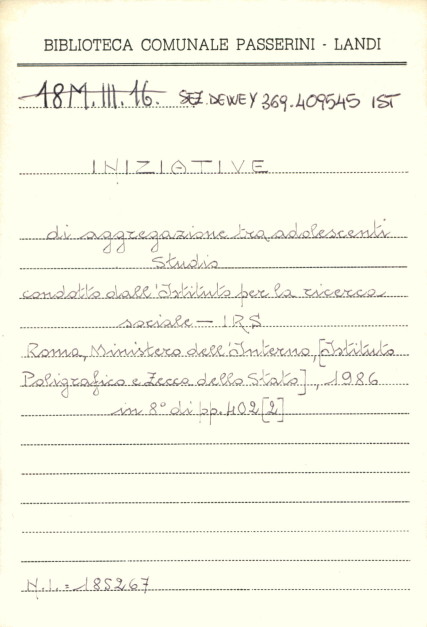 BIBLIOTECA COMUNALE PASSERINI - LANDI
18M.III.16. SEZ. DEWEY 369.409545 IST
INIZIATIVE
di aggregazione tra adolescenti
Studio
condotto dall'Istituto per la ricerca
sociale - IRS
Roma, Ministero dell'Interno, [Istituto
Poligrafico e Zecca dello Stato], 1986
in 8° di pp. 402 [2]
N.I. = 185267